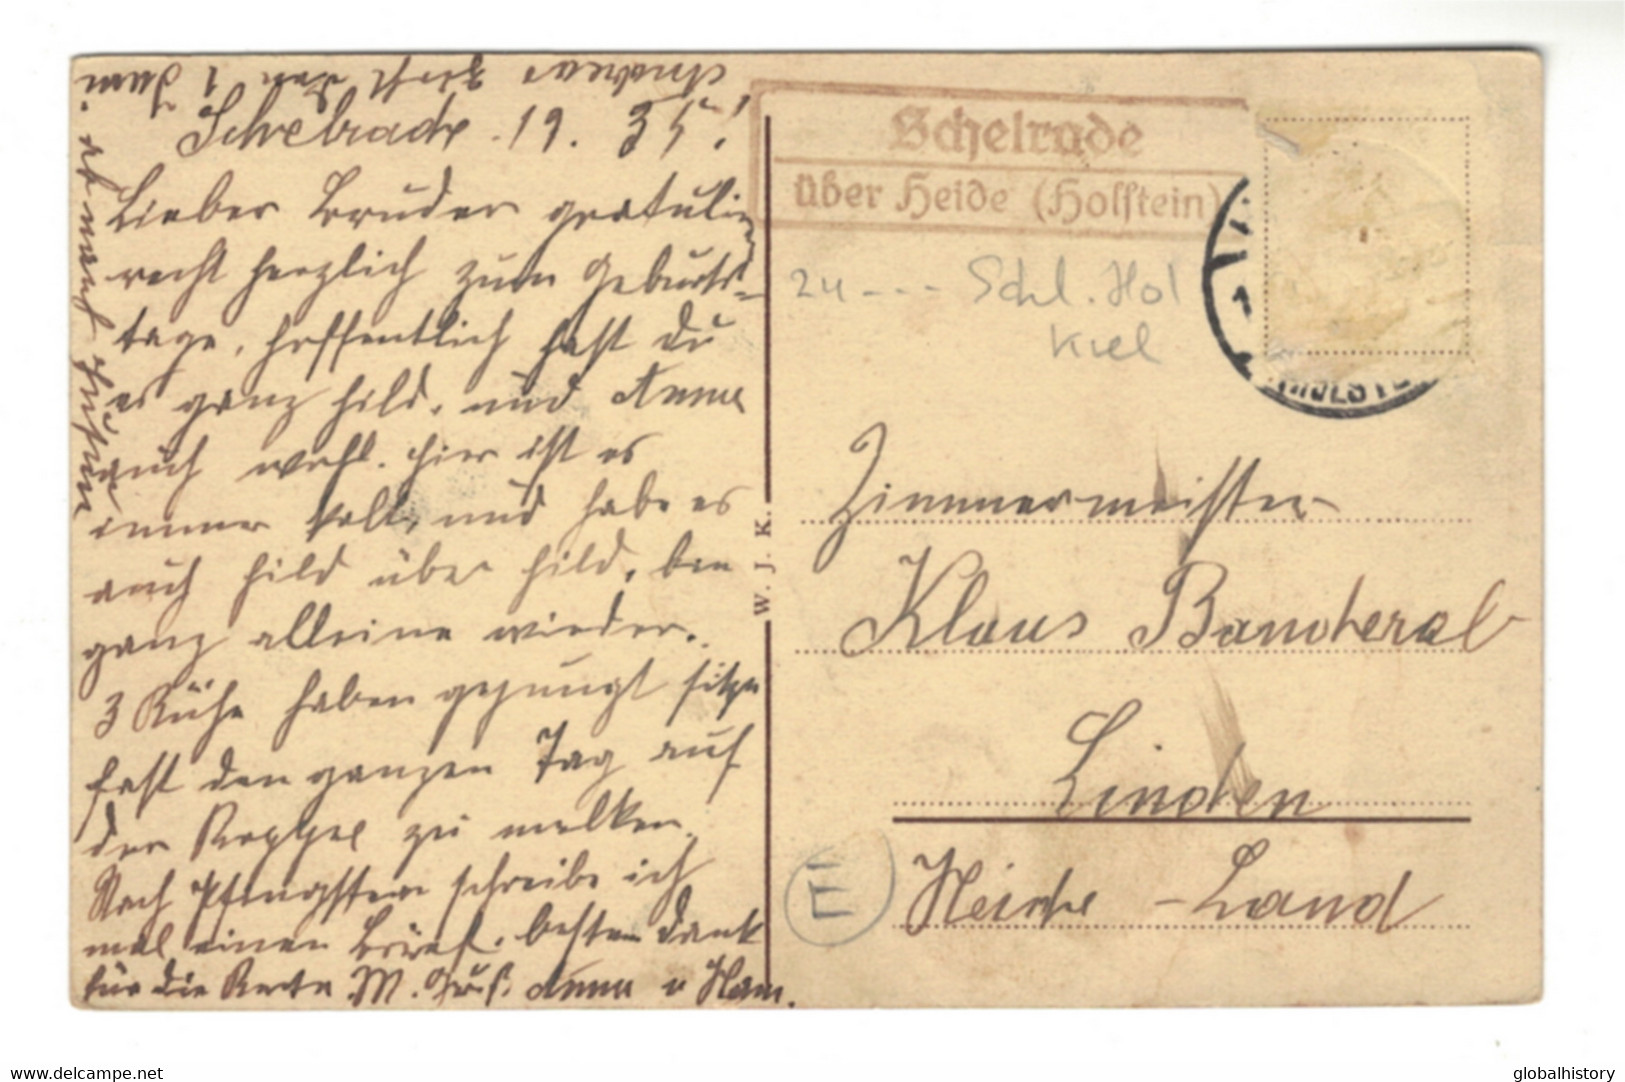 Schelrade. 19. 35.!
Lieber Bruder gratuliere
recht herzlich zum Geburts-
tage, hoffentlich hast Du
es ganz hild, und Anna
auch wohl. hier ist es
immer kalt, und habe es
auch hild über hild, bin
ganz alleine wieder.
3 Kühe haben gejungt sitze
fast den ganzen Tag auf
der Koppel zu melken.
Nach Pfingsten schreibe ich
mal einen Brief. besten Dank
für die Karte M. Gruß. Anna u Ham.
Schelrade
über Heide (Holstein)
24 --- Schl. Hol
Kiel
(HOLST
W. J. K.
Zimmermeister
Klaus
Linden
Heide - Land
delcampe.net
globalhistory